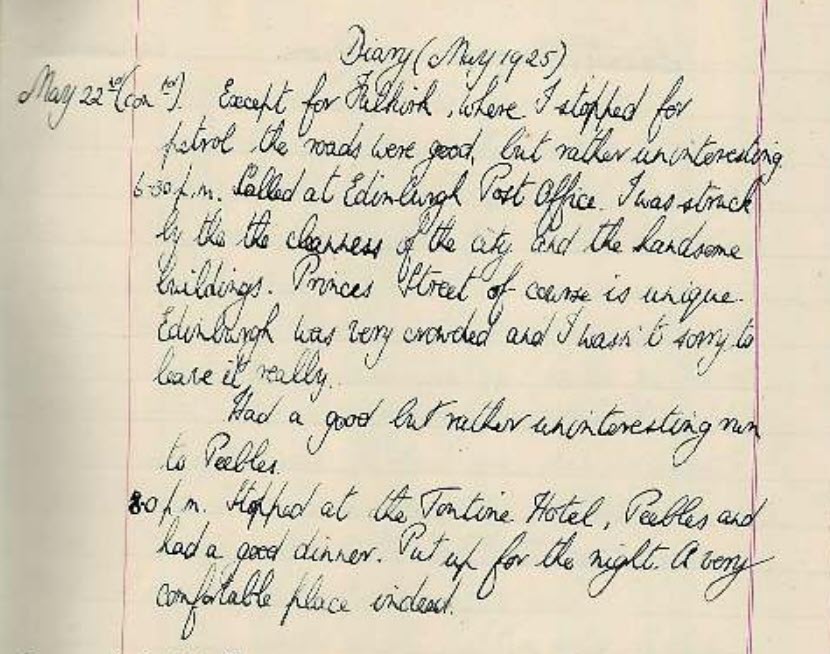 Diary (May 1925)
May 22nd (con td). Except for Falkirk, where I stopped for
petrol the roads were good, but rather uninteresting.
6-30 p.m. Called at Edinburgh Post Office. I was struck
by the the cleanness of the city and the handsome
buildings. Princes Street of course is unique.
Edinburgh was very crowded and I wasn't sorry to
leave it really.
Had a good but rather uninteresting run
to Peebles.
8-0 p.m. Stopped at the Tontine Hotel, Peebles and
had a good dinner. Put up for the night. A very
comfortable place indeed.